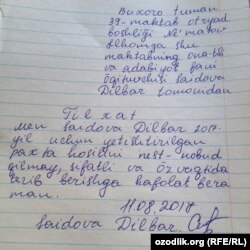 Buxoro tuman
39-maktab otryad
boshlig'i Ne'matov
Ilhomga shu
maktabning ona-tili
va adabiyot fani
o'qituvchisi Saidova
Dilbar tomonidan
Tilxat
Men Saidova Dilbar 2017-
yil uchun yetishtirilgan
paxta hosilini nest-nobud
qilmay, sifatli va o'z vaqtida
terib berishga kafolat bera
man.
11.08.2017
Saidova Dilbar
ozodlik.org (RFE/RL)